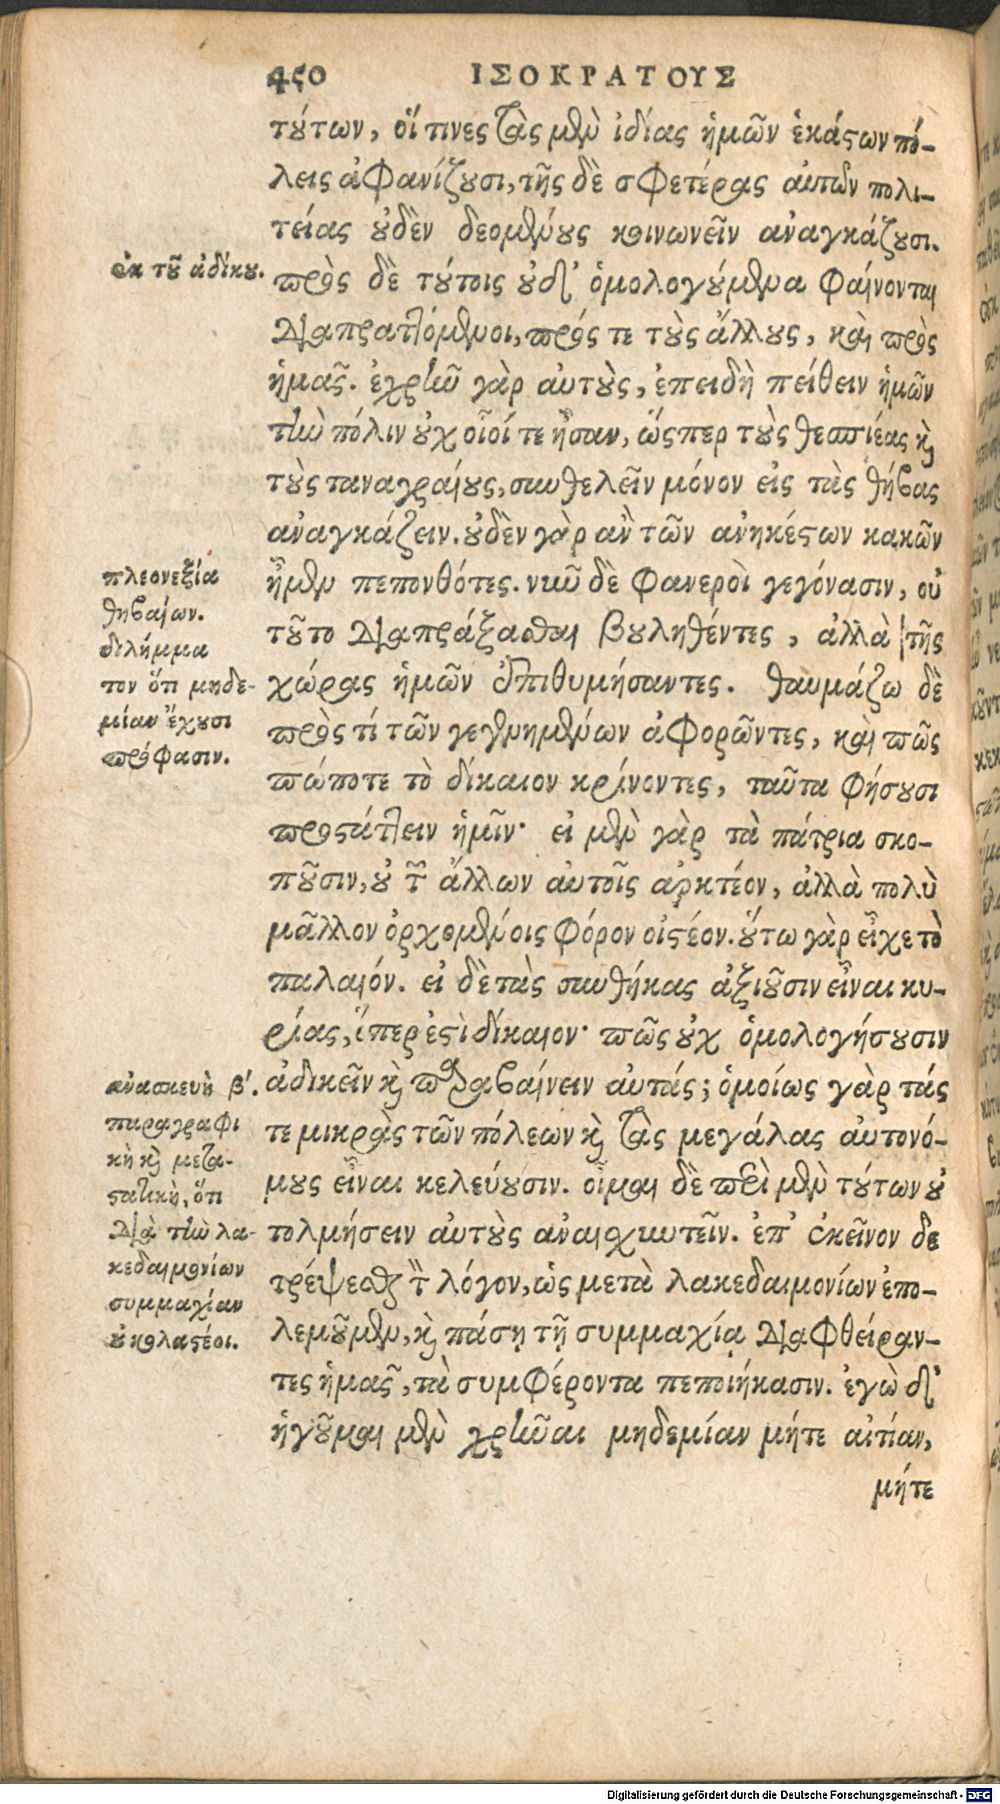 450 ΙΣΟΚΡΑΤΟΥΣ
τούτων, οἵ τινες τὰς μὲν ἰδίας ἡμῶν ἑκάστων πό-
λεις ἀφανίζουσι, τῆς δὲ σφετέρας αὐτῶν πολι-
τείας οὐδὲν δεομένους κοινωνεῖν ἀναγκάζουσι.
ἐκ τοῦ ἀδίκου.
πρὸς δὲ τούτοις οὐδ' ὁμολογούμενα φαίνονται
διαπραττόμενοι, πρός τε τοὺς ἄλλους, καὶ πρὸς
ἡμᾶς. ἐχρῆν γὰρ αὐτοὺς, ἐπειδὴ πείθειν ἡμῶν
τὴν πόλιν οὐχ οἷοί τε ἦσαν, ὥσπερ τοὺς θεσπιέας καὶ
τοὺς ταναγραίους, συντελεῖν μόνον εἰς τὰς θήβας
ἀναγκάζειν. οὐδὲν γὰρ ἂν τῶν ἀνηκέστων κακῶν
ἦμεν πεπονθότες. νῦν δὲ φανεροὶ γεγόνασιν, οὐ
τοῦτο διαπράξασθαι βουληθέντες, ἀλλὰ τῆς
χώρας ἡμῶν ἐπιθυμήσαντες. θαυμάζω δὲ
πρὸς τί τῶν γεγενημένων ἀφορῶντες, καὶ πῶς
πώποτε τὸ δίκαιον κρίνοντες, ταῦτα φήσουσι
προστάττειν ἡμῖν· εἰ μὲν γὰρ τὰ πάτρια σκο-
ποῦσιν, οὐ τῶν ἄλλων αὐτοῖς ἀρκτέον, ἀλλὰ πολὺ
μᾶλλον ὀρχομενίοις φόρον οἰστέον. οὕτω γὰρ εἶχε τὸ
παλαιόν. εἰ δὲ τὰς συνθήκας ἀξιοῦσιν εἶναι κυ-
ρίας, ὅπερ ἐστὶ δίκαιον· πῶς οὐχ ὁμολογήσουσιν
ἀδικεῖν καὶ παραβαίνειν αὐτάς; ὁμοίως γὰρ τάς
τε μικρὰς τῶν πόλεων καὶ τὰς μεγάλας αὐτονό-
μους εἶναι κελεύουσιν. οἶμαι δὲ περὶ μὲν τούτων οὐ
τολμήσειν αὐτοὺς ἀναισχυντεῖν. ἐπ' ἐκεῖνον δὲ
τρέψεσθαι τὸν λόγον, ὡς μετὰ λακεδαιμονίων ἐπο-
λεμοῦμεν, καὶ πάσῃ τῇ συμμαχίᾳ διαφθείραν-
τες ἡμᾶς, τὰ συμφέροντα πεποιήκασιν. ἐγὼ δ'
ἡγοῦμαι μὲν χρῆναι μηδεμίαν μήτε αἰτίαν,
μήτε
πλεονεξία
θηβαίων.
διλήμμα
τον ὅτι μηδε-
μίαν ἔχουσι
πρόφασιν.
ἀνασκευὴ β'.
παραγραφι
κὴ καὶ μετα-
στατικὴ, ὅτι
διὰ τὴν λα-
κεδαιμονίων
συμμαχίαν
οὐ κολαστέοι.
Digitalisierung gefördert durch die Deutsche Forschungsgemeinschaft - DFG